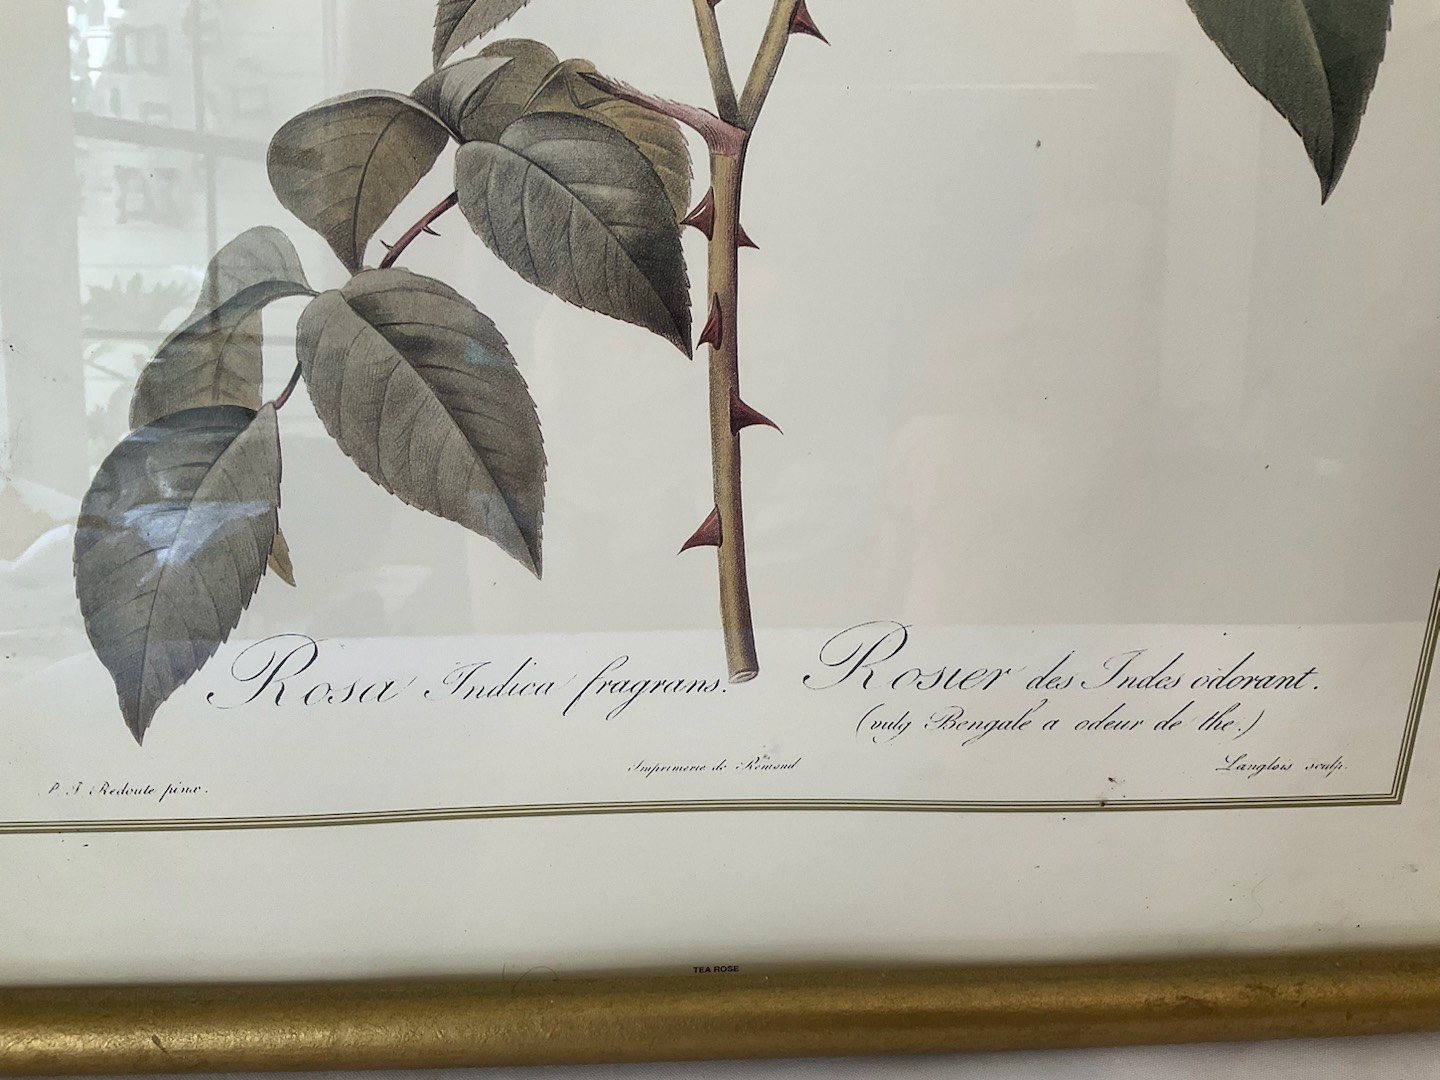 Rosa Indica fragrans.
Rosier des Indes odorant.
(vulg Bengale a odeur de the.)
Imprimerie de Rémond
Langlois sculp.
P. J. Redoute pinx.
TEA ROSE